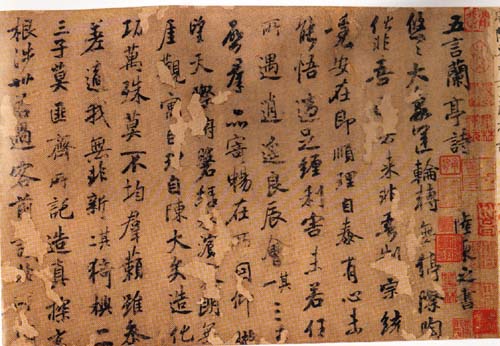 五言蘭亭詩
陸柬之書
悠々大象運輪轉無停際陶
化非吾去來非吾制宗統
竟安在即順理自泰有心未
能悟適足纏利害未若任
所遇逍遙良辰會其一三
羣品寄暢在所因仰
望天際俯綠水朗無
厓觀寓目自陳大矣造化
功萬殊莫不均羣籟雖參
差適我無非新其猗與二
三子莫匪齊所託造真探玄
根涉世若過客前識